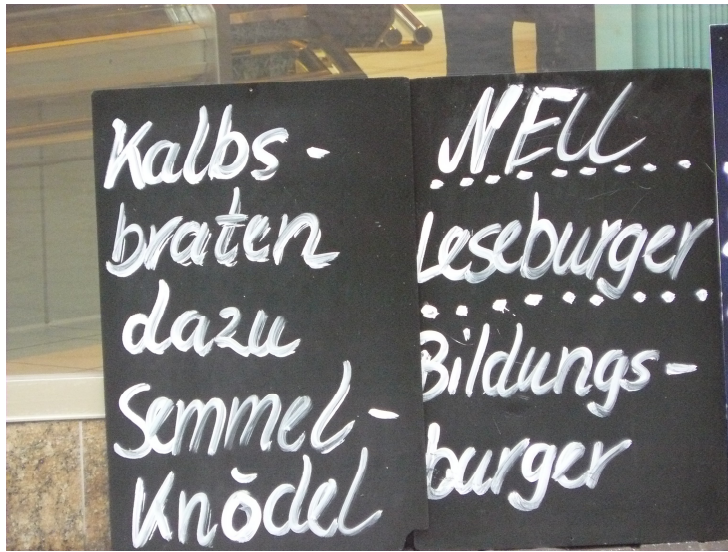 Kalbs-
braten
dazu
Semmel-
Knödel
NEU
Leseburger
Bildungs-
burger